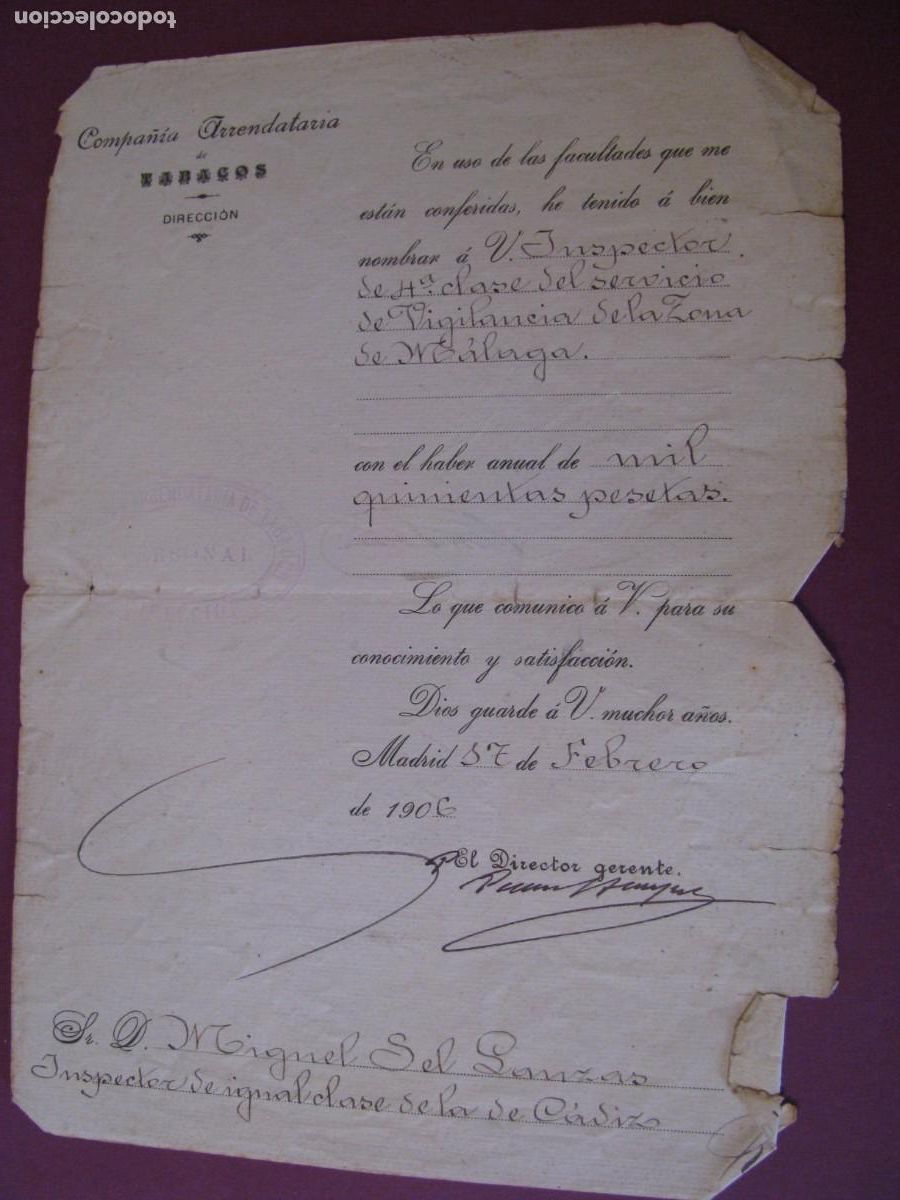 todocoleccion
Compañía Arrendataria
de
TABACOS
DIRECCIÓN
En uso de las facultades que me
están conferidas, he tenido á bien
nombrar á V. Inspector
de 4ª clase del servicio
de Vigilancia de la Zona
de Málaga.
con el haber anual de mil
quinientas pesetas.
ARRENDATARIA DE
PERSONAL
Lo que comunico á V. para su
conocimiento y satisfacción.
Dios guarde á V. muchos años.
Madrid de Febrero
de 1906
El Director gerente.
Sr. D. Miguel Sel Lanzas
Inspector de igual clase de la de Cádiz